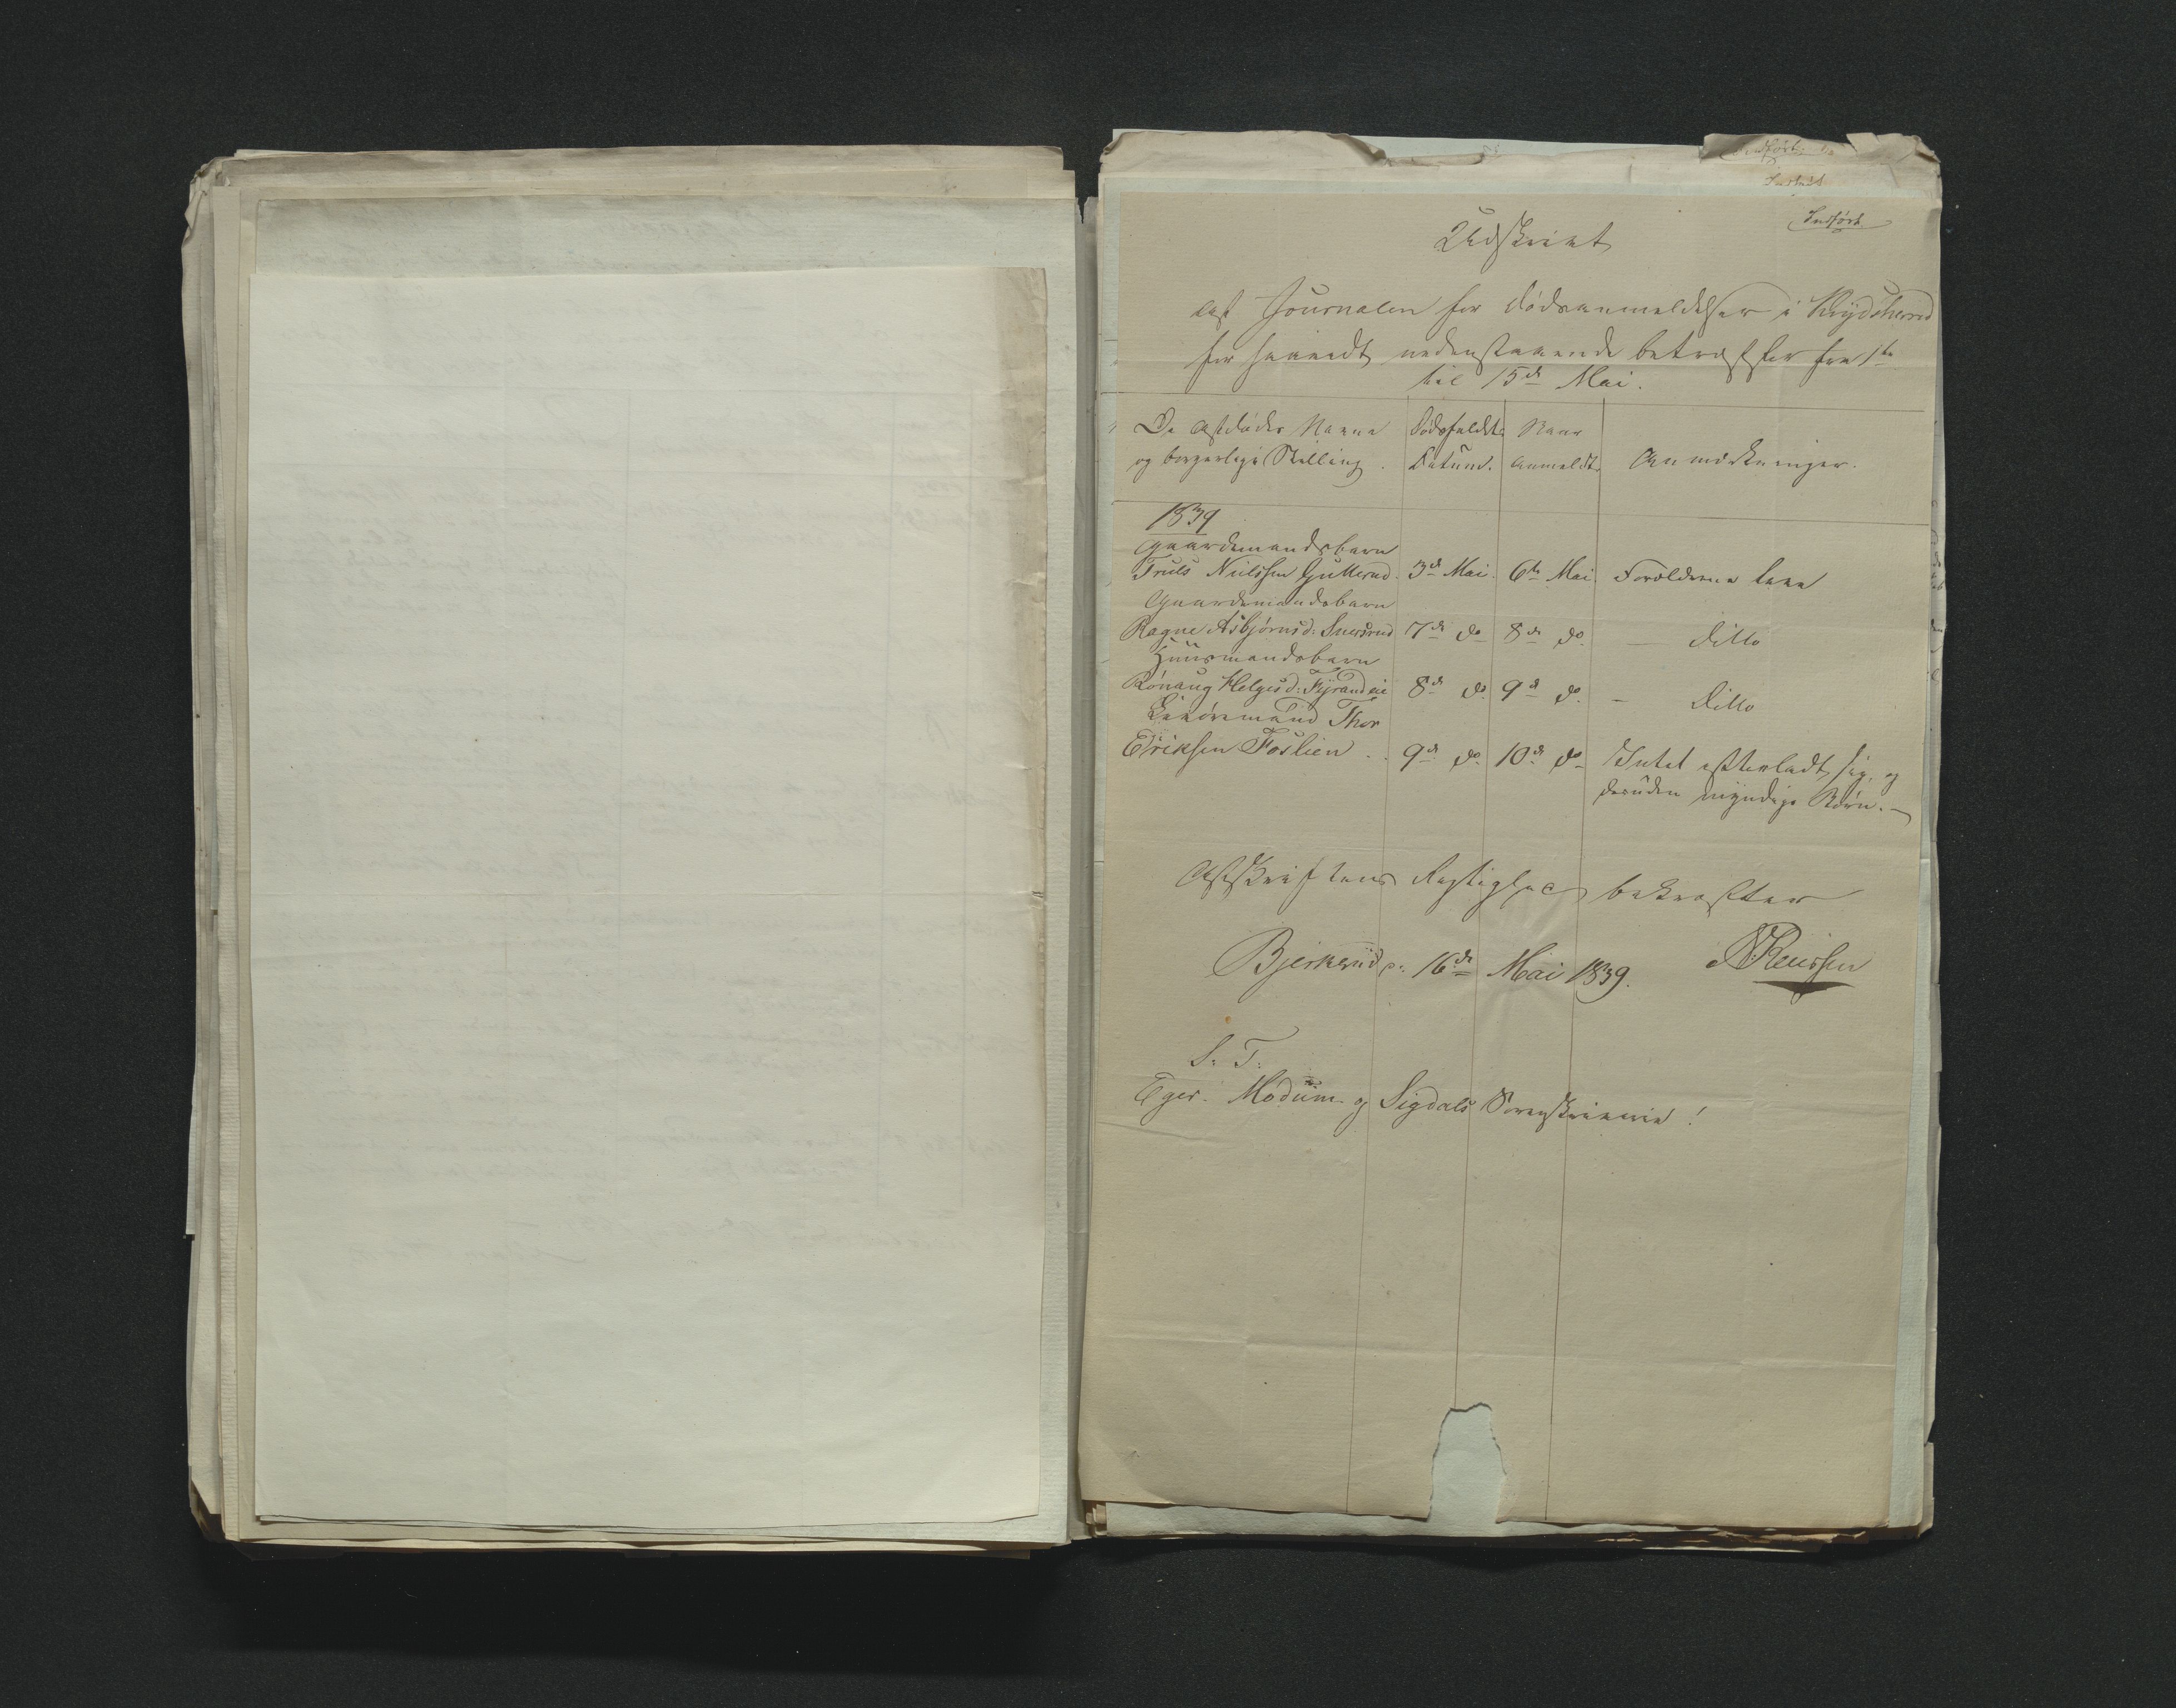 Indført.
Udskrivt
af Journalen for dødsanmeldelser i Krydsherred
for saavidt nedenstaaende betræffer fra 1te
til 15de Mai.
De afdødes Navne
og borgerlige Stilling.
Dødsfaldets
Datum.
Naar
anmeldt.
Anmærkninger.
1839
Gaardmandsbarn
Truls Nielssen Gulterud. 3de Mai. 6te Mai. Forældrene leve
Gaardemandsbarn
Ragne Asbjørnsd: Snersrud 7de do 8de do. — ditto
Huusmandsbarn
Rønaug Helgesd: Fyrandeie 8de do. 9de do. — ditto
Thor
Eriksen Foslien . . 9de do. 10de do Intet efterladt sig, og
desuden myndige Børn. —
Afskriftens Rigtighed bekræfter
Bjerkerud d: 16de Mai 1839.
S: T:
Eger. Modum. og Sigdals Sorenskriverie!